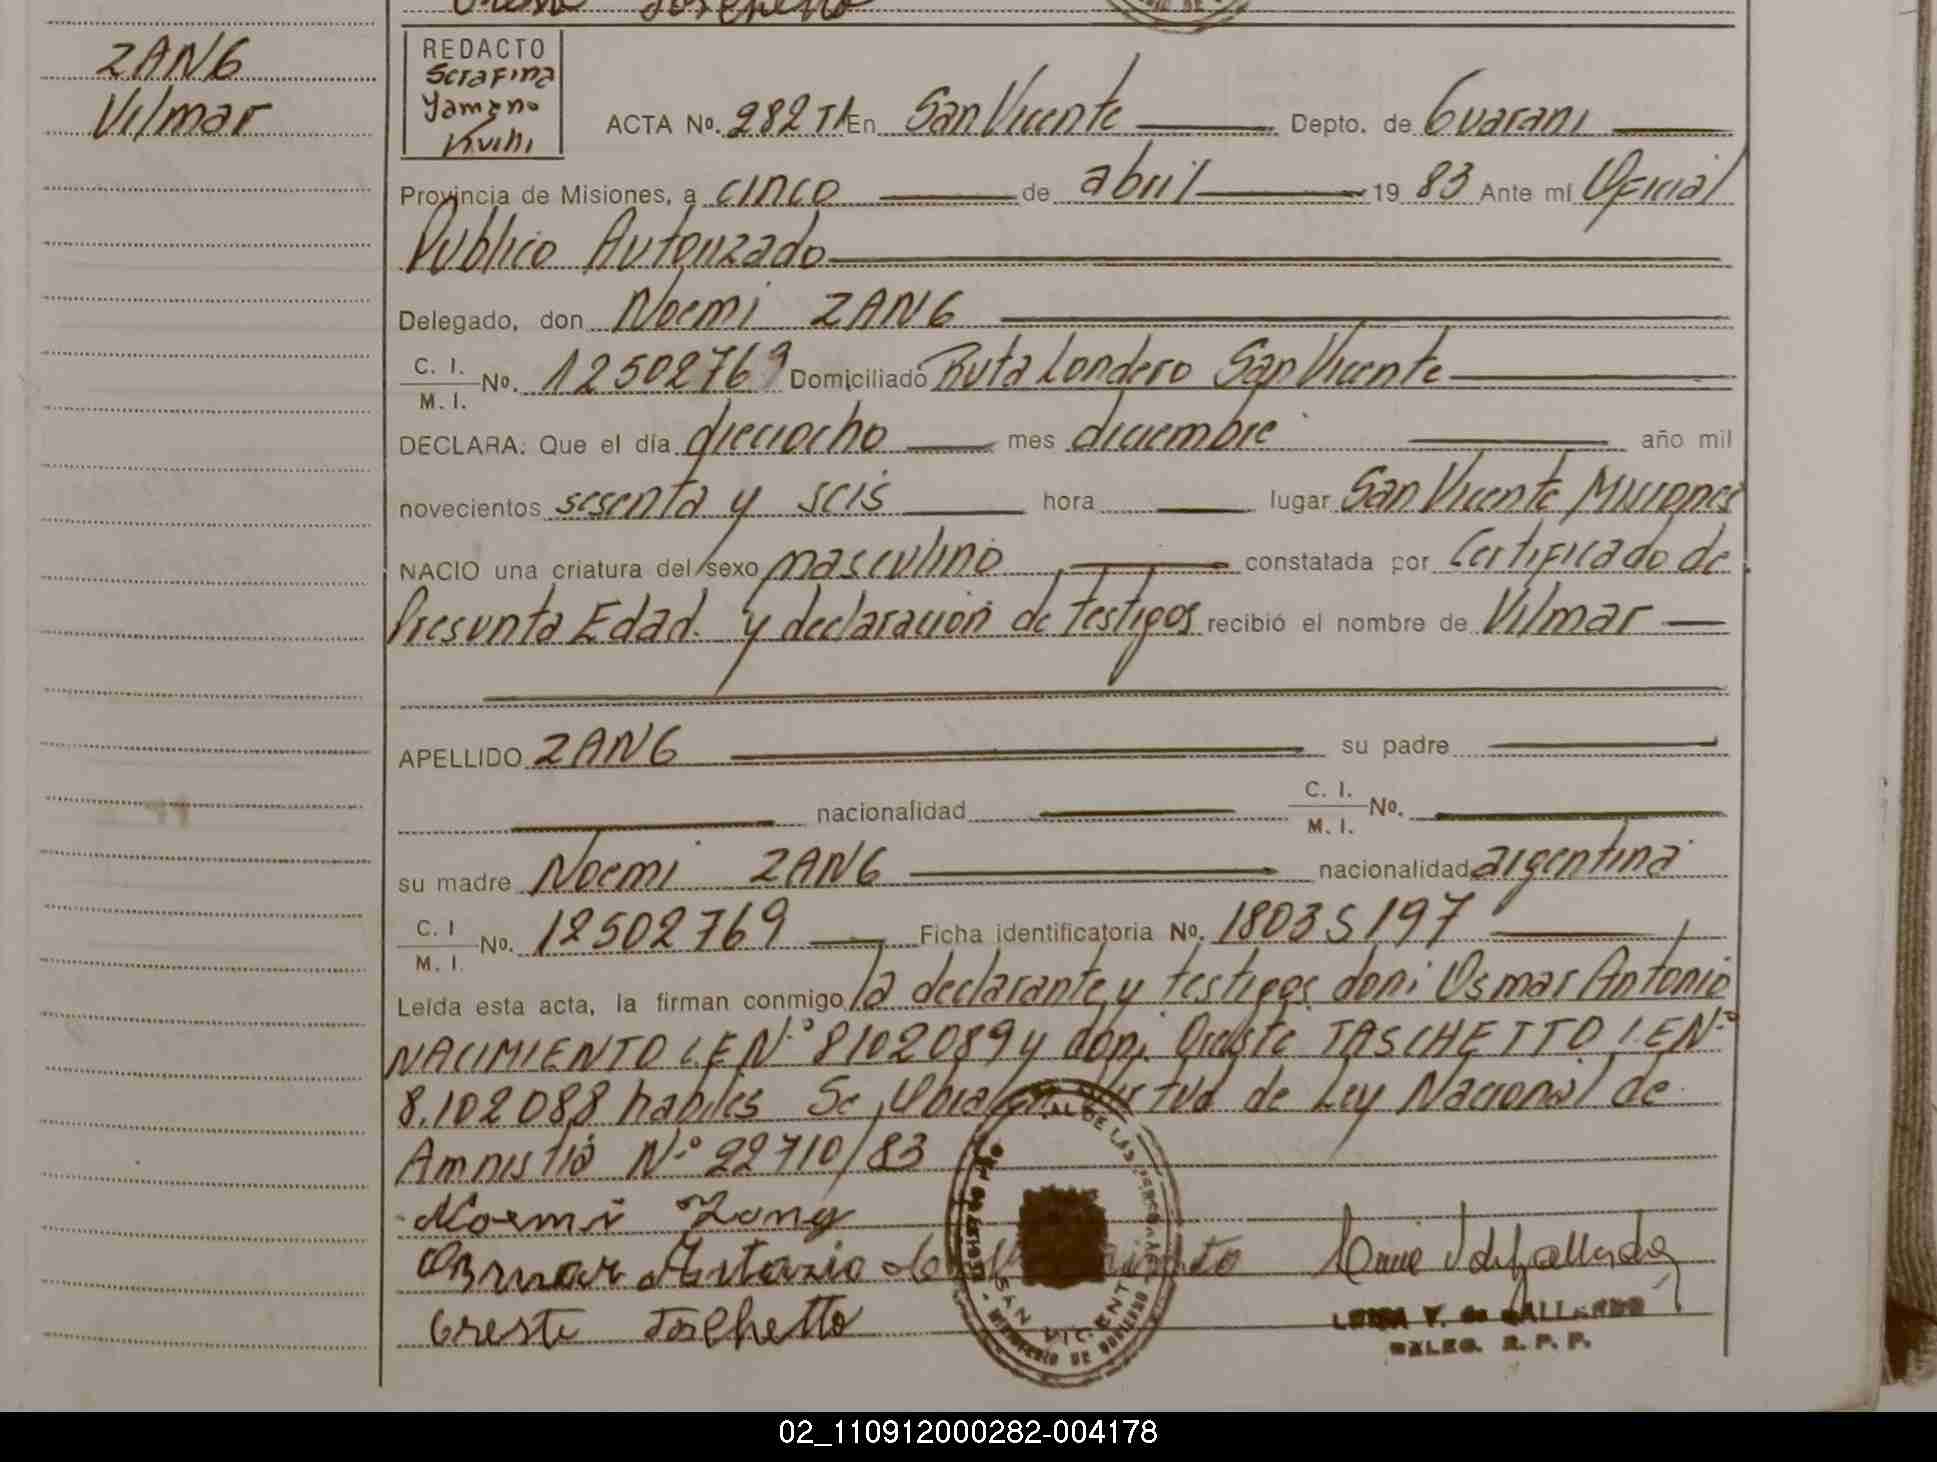 Oreste Toschetto
ZANG
Vilmar
REDACTO
Serafina
Yameno
ACTA No. 282 TI En San Vicente Depto. de Guarani
Provincia de Misiones, a cinco de abril 19 83 Ante mí Oficial
Publico Autorizado
Delegado, don Noemi ZANG
C. I.
M. I. No. 12502769 Domiciliado Ruta Londero San Vicente
DECLARA: Que el día dieciocho mes diciembre año mil
novecientos sesenta y seis hora lugar San Vicente Misiones
NACIO una criatura del sexo masculino constatada por Certificado de
Presunta Edad. y declaración de testigos recibió el nombre de Vilmar
APELLIDO ZANG su padre
nacionalidad C. I.
M. I. No.
su madre Noemi ZANG nacionalidad argentina
C. I
M. I. No. 12502769 Ficha identificatoria No. 18035197
Leída esta acta, la firman conmigo la declarante y testigos don: Osmar Antonio
NACIMIENTO L.E Nº 8102089 y don: Oreste TASCHETTO L.E Nº
8.102088 habiles Se labra en virtud de Ley Nacional de
Amnistia Nº 22710/83
Noemi Zang
Osmar Antonio
Oreste Toschetto
SAN VICENTE
MINISTERIO DE GOBIERNO
V. de GALLARDO
DELEG. R. P. P.
02_110912000282-004178